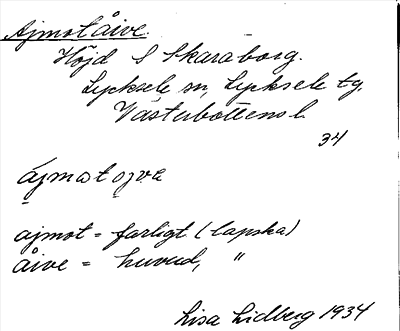 Ajmotåive.
Höjd S Skaraborg.
Lycksele sn, Lycksele tg.
Västerbottens l.
34
ájmat ojva
ajmot = farligt (lapska)
åive = huvud, "
Lisa Lidberg 1934